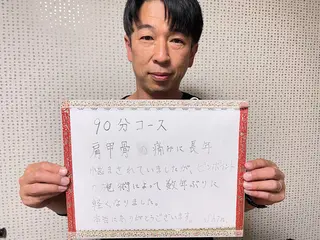 90分コース
肩甲骨の痛みに長年
悩まされていましたが、
施術によって数年ぶりに
軽くなりました。
ありがとうございます。